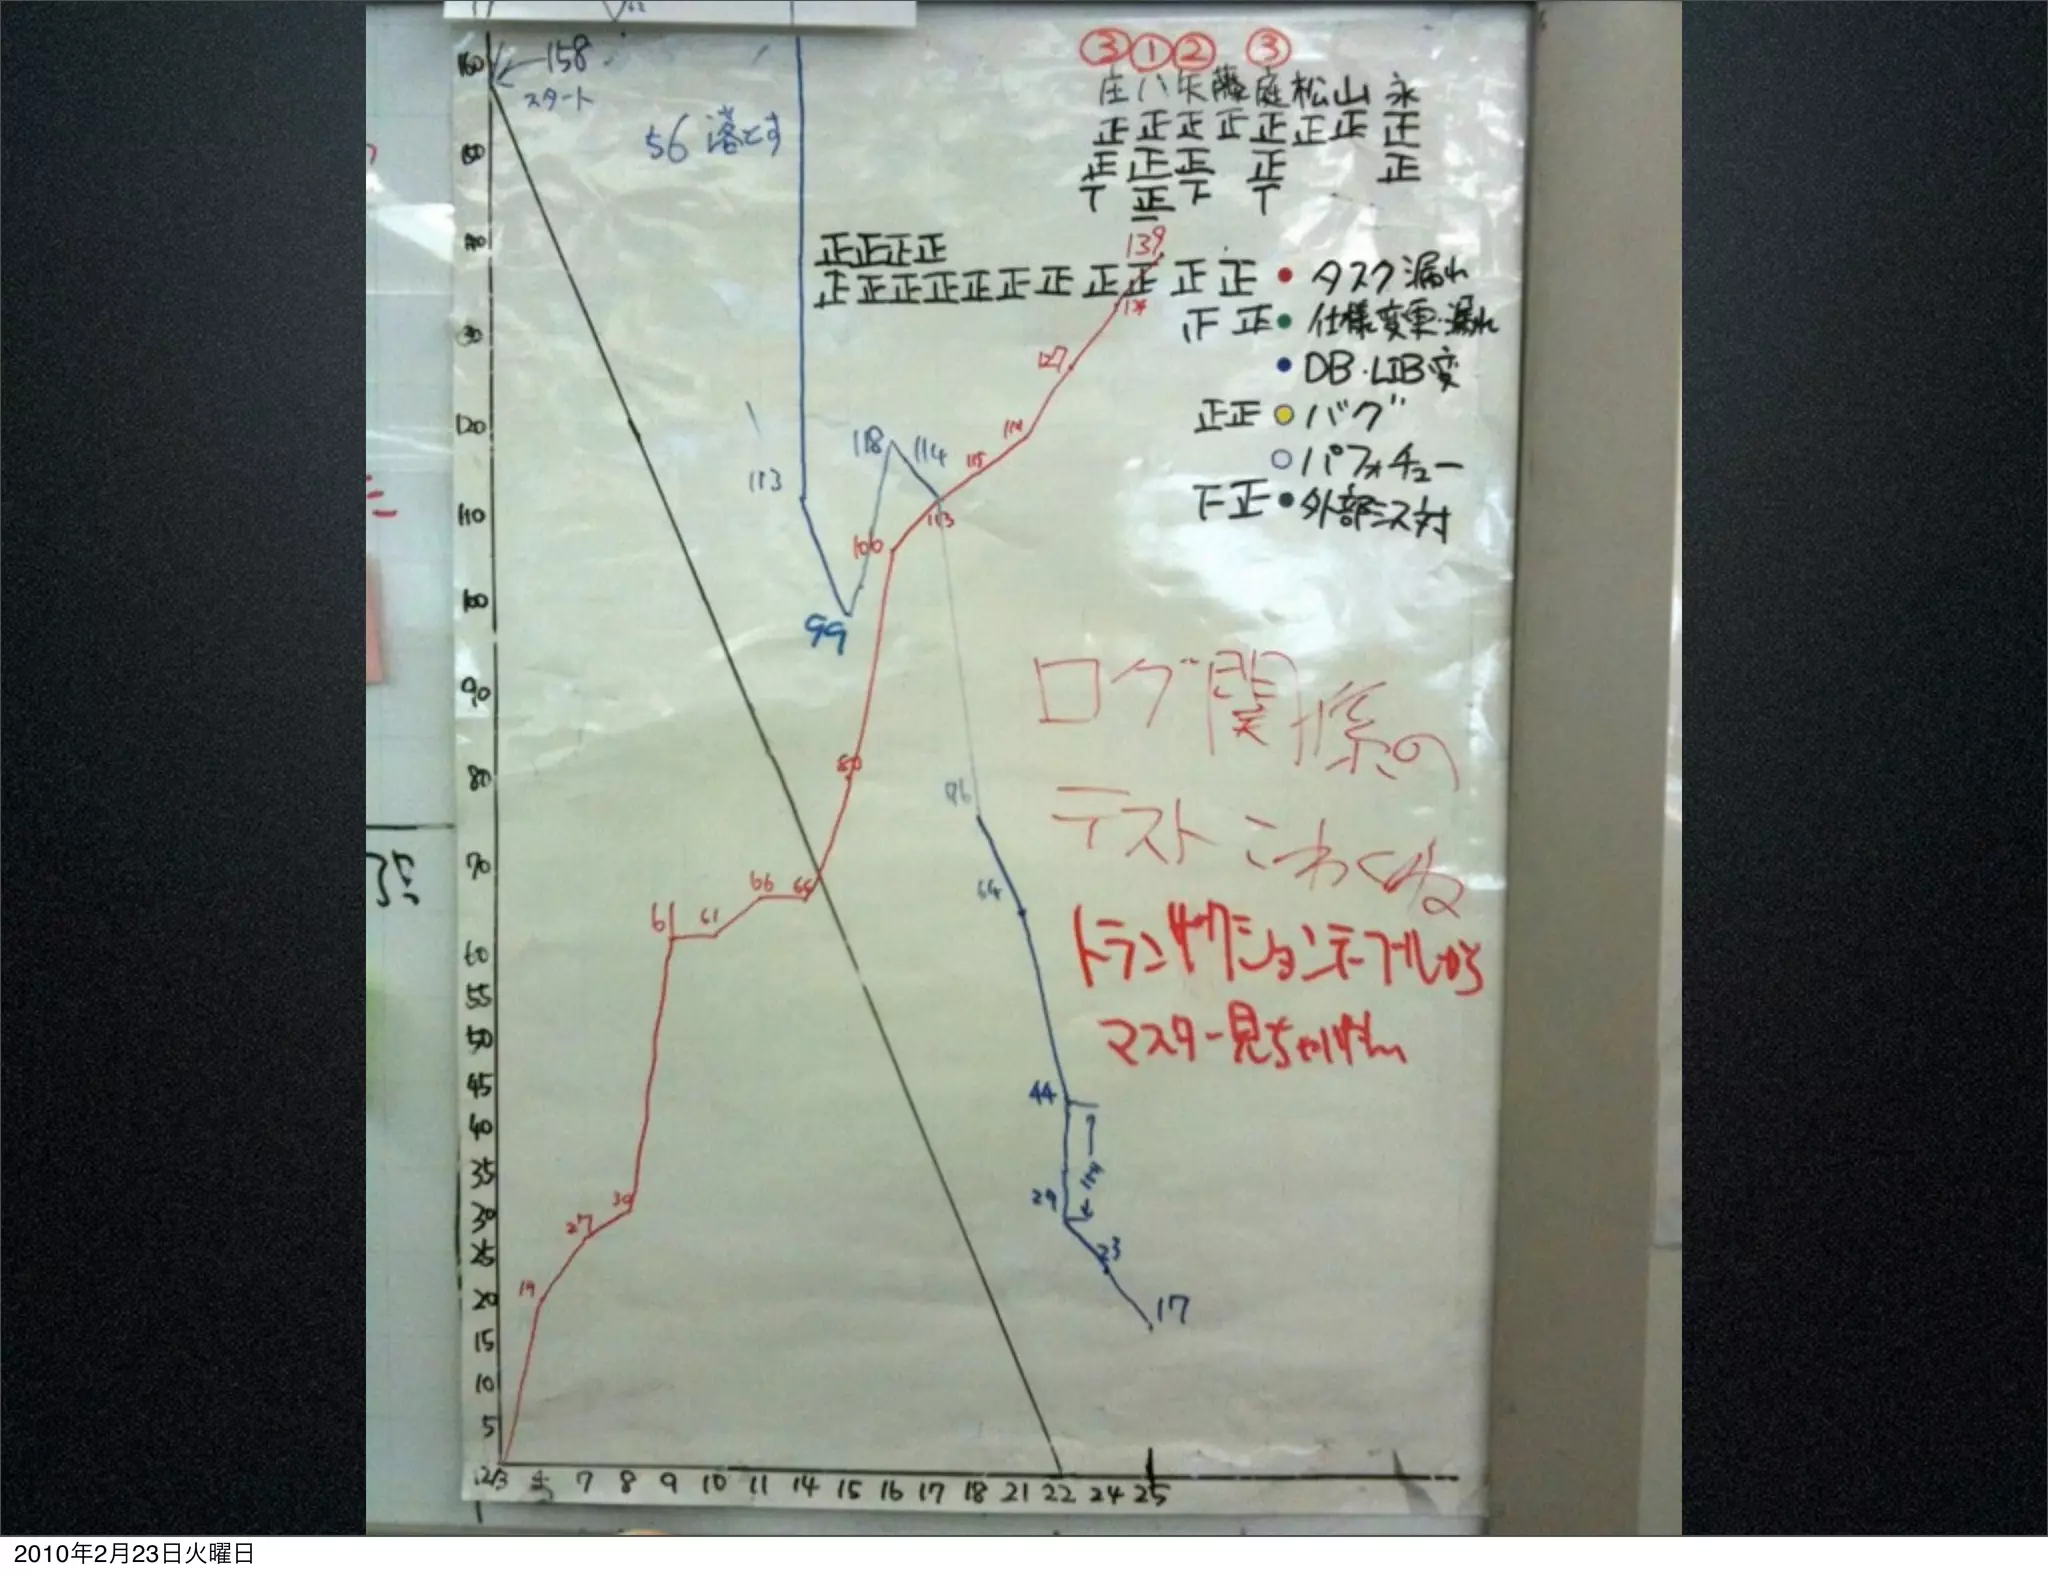 158
スタート
56 落とす
③ ① ② ③
庄 八 矢 藤 庭 松 山 永
正 正 正 正 正 正 正 正
正 正 正 正 正
T 正 T T
一
139
正正正正
正正正正正正正正正正正 タスク漏れ
正正 仕様変更・漏れ
DB・LIB変
正正 バグ
パフォチュー
下正 外部ミス対
127
118 114
119
115
113
113
100
99
80
ログ関係の
テストこわくね
66
61 61
トランザクションテーブルから
マスター見ちゃいけねー
64
44
29
30
27
23
19
17
160
120
110
100
90
80
70
60
55
50
45
40
35
30
25
20
15
10
5
12/3 7 8 9 10 11 14 15 16 17 18 21 22 24 25
2010年2月23日火曜日